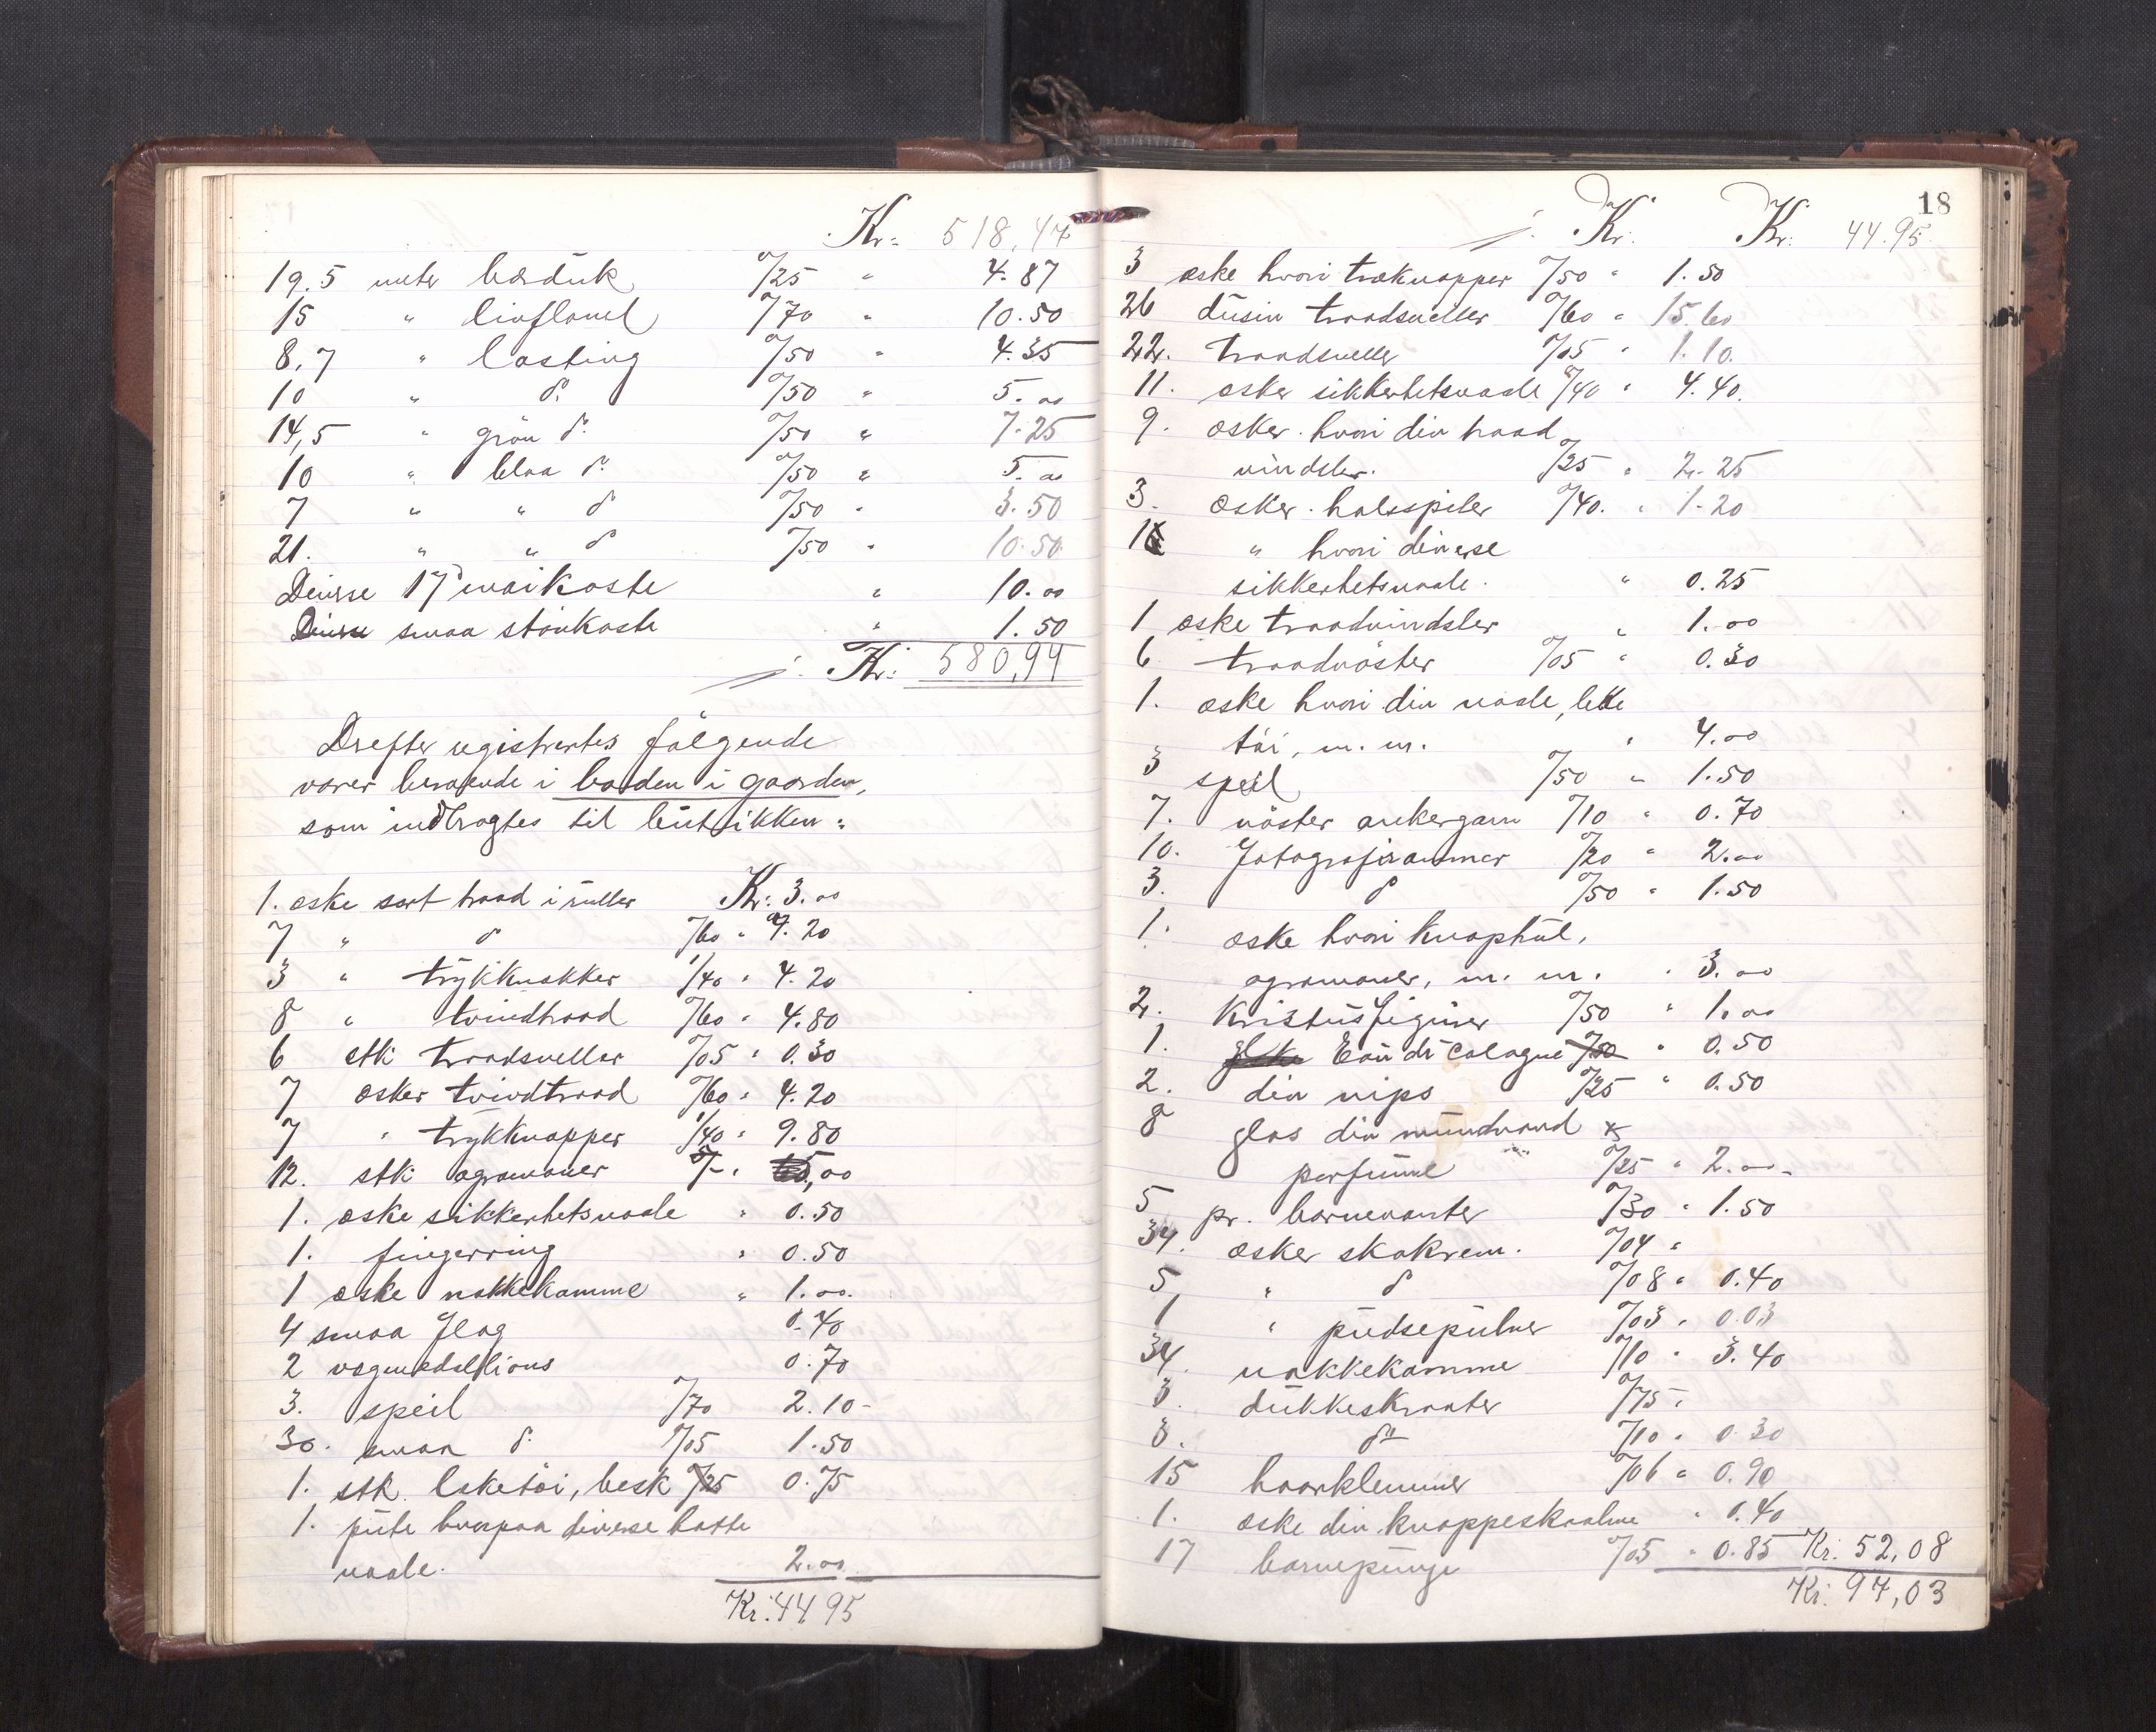 Kr: 518,47
19.5 meter bordük à/25 " 4.87
15 " linflanel à/70 " 10.50
8,7 " lasting à/50 " 4.35
10 " do à/50 " 5.00
14,5 " grön do à/50 " 7.25
10 " blaa do à/50 " 5.00
7 " " do à/50 " 3.50
21. " " do à/50 " 10.50
Deiverse 17 " 10.00
smaa " 1.50
Kr: 580,94
Drefter registrertes fölgende
varer beroende i boden i gaarden,
som indbragtes til bütikken:
1. æske sort traad i rüller Kr: 3.00
7 " do à/60 " 4.20
3 " trÿkknakker 1/40 " 4.20
8 " tvindtraad à/60 " 4.80
6 stk traadsneller à/05 " 0.30
7 æsker tvindtraad à/60 " 4.20
7 " trÿkknapper 1/40 " 9.80
12. stk agramaner 5/- " 5,00
1. æske sikkerhetsnaale " 0.50
1. fingerring " 0.50
1 æske nakkekamme " 1.00.
4 smaa flag 0.40
2 0.70
3. speil à/70 2.10-
30. smaa do à/05 1.50
1. stk. lsketöi, besk à/25 0.75
1. püte hvorpaa diverse hatte
naale. 2.00
Kr: 44 95
18
Kr: Kr: 44.95
3 æske hvori træknapper à/50 " 1.50
26 düsin traadsneller à/60 " 15.60
22. traadsneller à/05 " 1.10.
11. æsker sikkerhetsnaale à/40 " 4.40.
9. æsker hvori div traad
vindsler. à/25 " 2.25
3. æsker halsspiler à/40. " 1.20
1 " hvori diverse
sikkerhetsnaale. " 0.25
1 æske traadvindsler " 1.00
6 traadnöster à/05 " 0.30
1. æske hvori div naale, leke
töi, m. m. " 4.00
3 speil à/50 " 1.50
7. nöster ankergarn à/10 " 0.70
10. Fotografirammer à/20 " 2.00
3. do à/50 " 1.50
1. æske hvori knaphül,
agramaner, m. m. " 3.00
2. Kristüsfigürer à/50 " 1.00
1. Eau de Cologne à/50 " 0.50
2. div nips à/25 " 0.50
8 glas div mündvand &
perfüme à/25 " 2.00-
5 pr. barnevanter à/30 " 1.50
34. æsker skokrem. à/04 "
5 " do à/08 " 0.40
1 " püdsepülver à/03 " 0.03
34. nakkekamme à/10 " 3.40
3. dükkeskranter à/75 "
3. do à/10 " 0.30
15 haarklemmer à/06 " 0.90
1. æske div. knappeskaalme " 0.40
17 barnepünge à/05 " 0.85 Kr. 52,08
Kr. 97,03